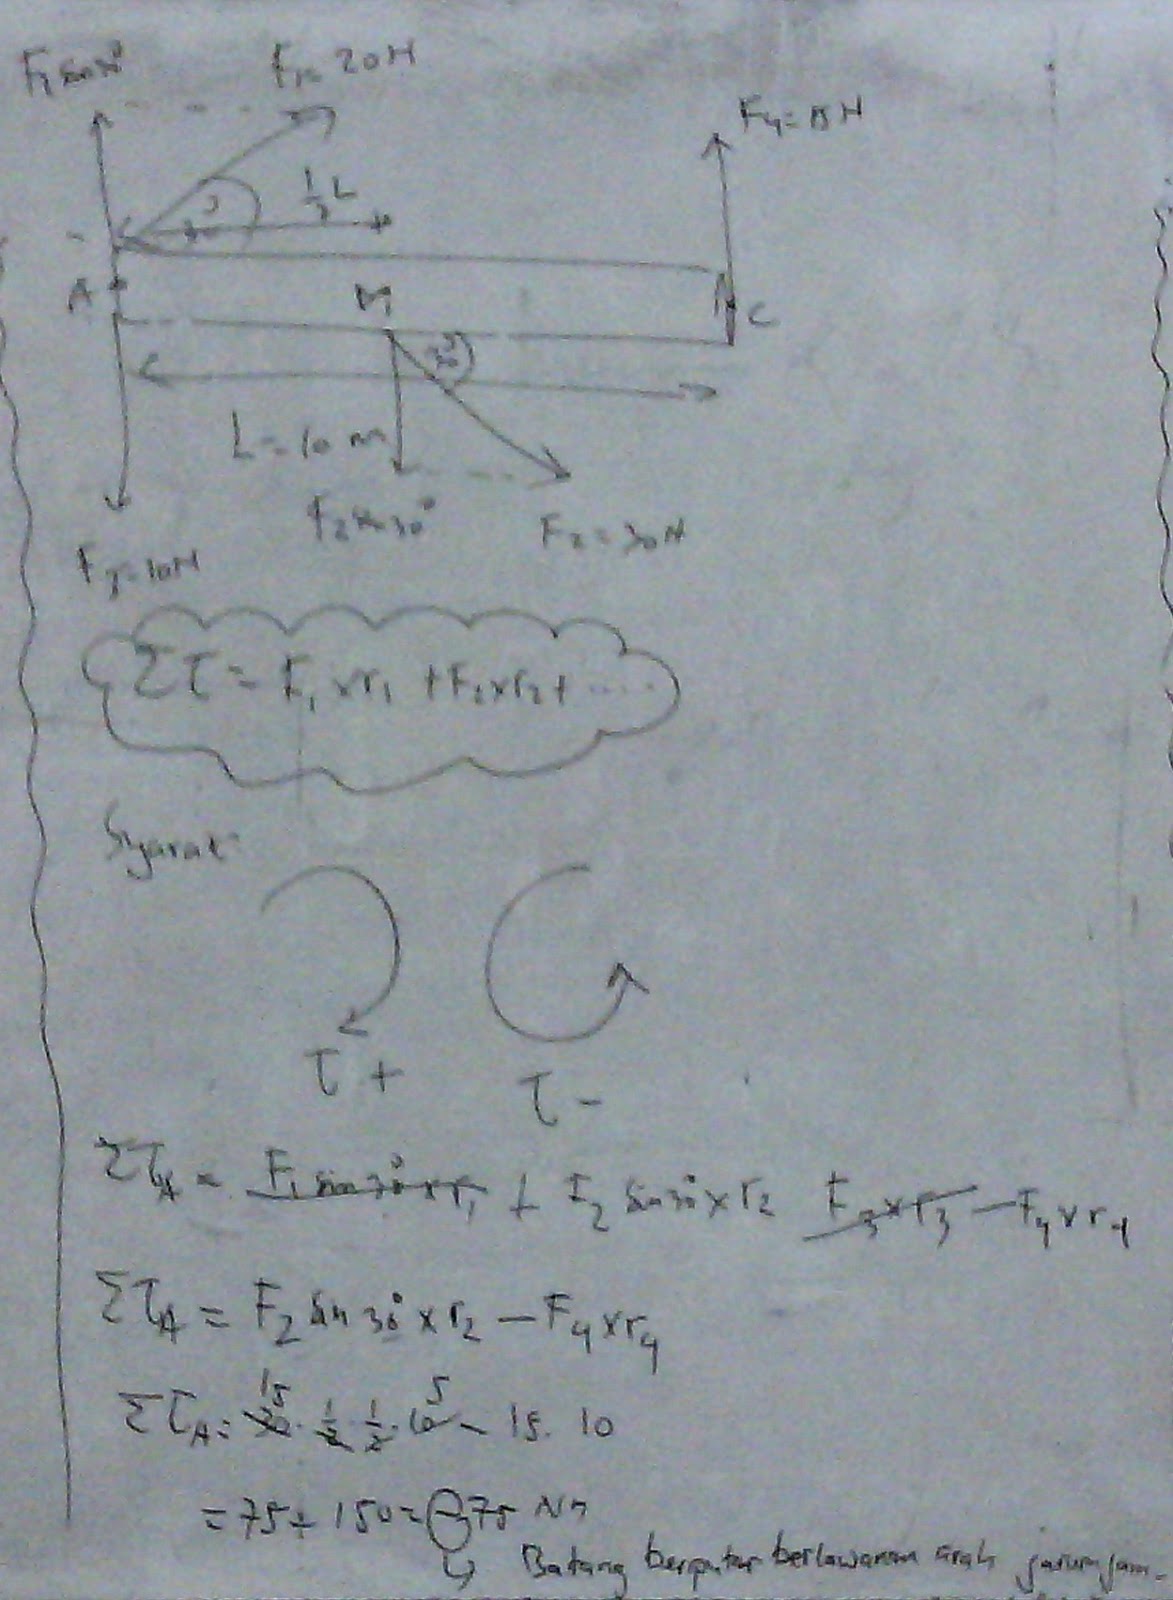 F₁ sin 30° F₁ = 20 N
F₄ = 15 N
30° ½ L
A M C
30°
L = 10 m
F₂ sin 30° F₂ = 30 N
F₃ = 10 N
Στ = F₁ x r₁ + F₂ x r₂ + .....
Syarat:
τ + τ -
Στ_A = F₁ sin 30° x r₁ + F₂ sin 30° x r₂ F₃ x r₃ - F₄ x r₄
Στ_A = F₂ sin 30° x r₂ - F₄ x r₄
15 5
Στ_A = 30 . 1/2 . 1/2 . 10 - 15 . 10
= 75 + 150 = -75 Nm
Batang berputar berlawanan arah jarum jam.